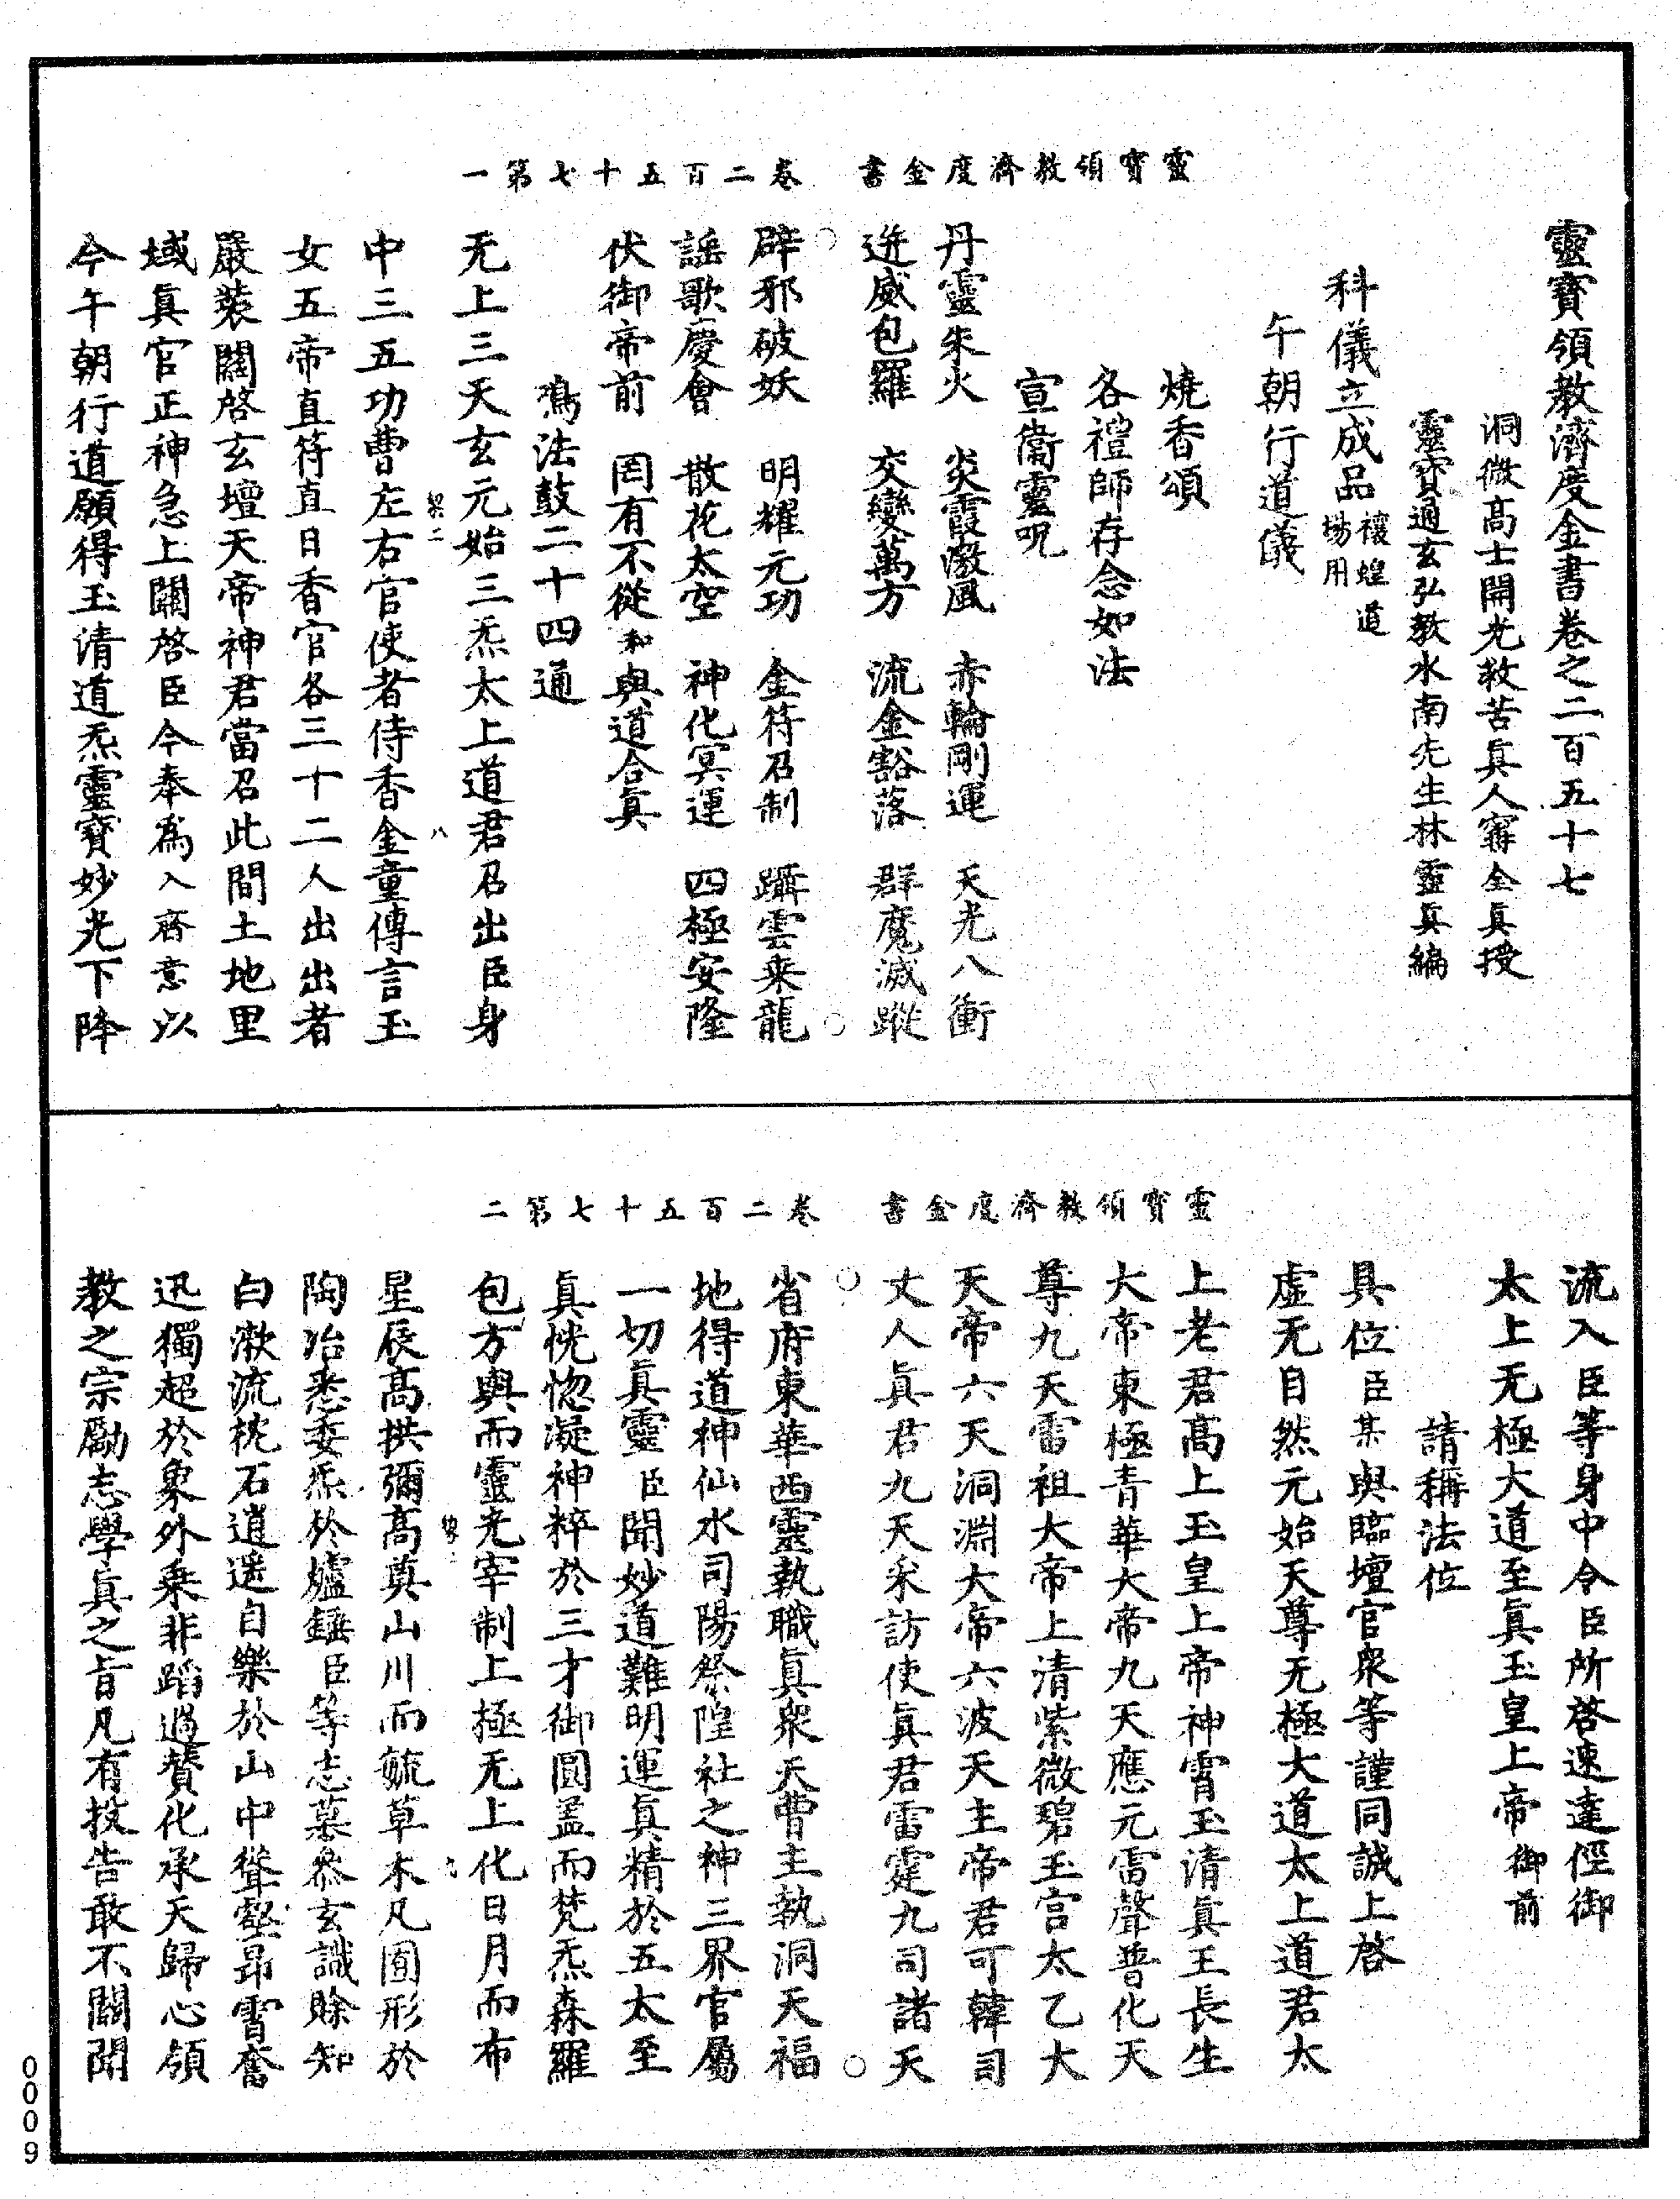 靈寶領教濟度金書　卷二百五十七第一
靈寶領教濟度金書卷之二百五十七
洞微高士開光救苦眞人甯全眞授
靈寶通玄弘教水南先生林靈眞編
科儀立成品禳蝗道場用
午朝行道儀
燒香頌
各禮師存念如法
宣衞靈呪
丹靈朱火　炎霞激風　赤輪剛運　天光八衝
迸威包羅　交變萬方　流金豁落　群魔滅蹤
辟邪破妖　明耀元功　金符召制　躡雲来龍
謡歌慶會　散花太空　神化冥運　四極安隆
伏御帝前　罔有不從和與道合眞
鳴法鼓二十四通
无上三天玄元始三炁太上道君召出臣身
中三五功曹左右官使者侍香金童傳言玉
女五帝直符直日香官各三十二人出出者
嚴裝關啓玄壇天帝神君當召此間土地里
域眞官正神急上關啓臣今奉爲入齋意以
今午朝行道願得玉清道炁靈寶妙光下降
靈寶領教濟度金書　卷二百五十七第二
流入臣等身中令臣所啓速達徑御
太上无極大道至眞玉皇上帝御前
請稱法位
具位臣某與臨壇官衆等謹同誠上啓
虛无自然元始天尊无極大道太上道君太
上老君高上玉皇上帝神霄玉清眞王長生
大帝東極青華大帝九天應元雷聲普化天
尊九天雷祖大帝上清紫微碧玉宫太乙大
天帝六天洞淵大帝六波天主帝君可韓司
丈人眞君九天采訪使眞君雷霆九司諸天
省府東華西靈執職眞衆天曹主執洞天福
地得道神仙水司陽祭隍社之神三界官屬
一切眞靈臣聞妙道難明運眞精於五太至
眞恍惚凝神粹於三才御圓蓋而梵炁森羅
包方輿而靈光宰制上極无上化日月而布
星辰高拱彌高奠山川而毓草木凡囿形於
陶冶悉委炁於爐錘臣等志慕參玄識賒知
白漱流枕石逍遥自樂於山中聳壑昂霄奮
迅獨超於象外乘非蹈過贊化承天歸心領
教之宗勵志學眞之旨凡有投告敢不關聞
00009